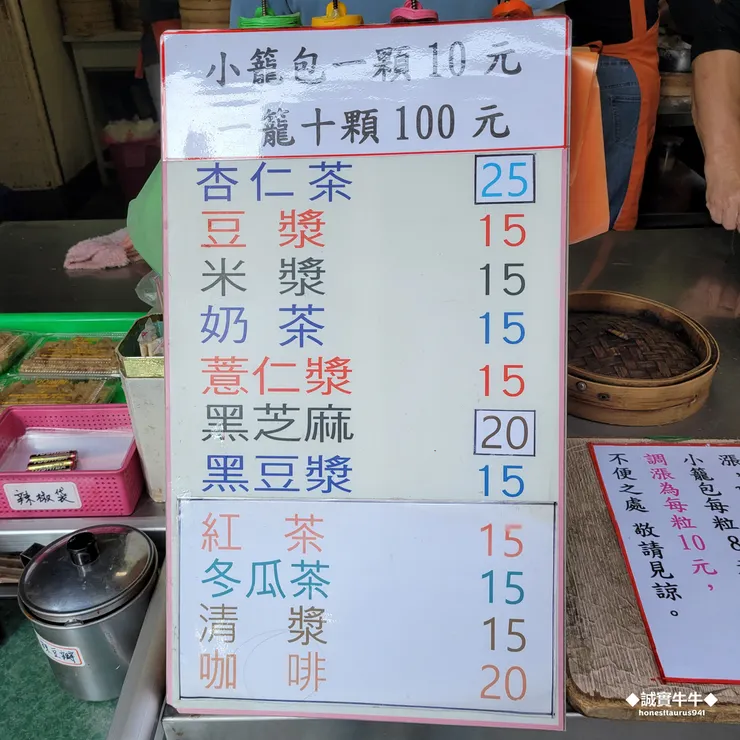 小籠包一顆10元
一籠十顆100元
杏仁茶 25
豆漿 15
米漿 15
奶茶 15
薏仁漿 15
黑芝麻 20
黑豆漿 15
紅茶 15
冬瓜茶 15
清漿 15
咖啡 20
辣椒袋
小籠包每粒8
調漲為每粒10元，
不便之處 敬請見諒。
◆誠實牛牛◆
honesttaurus941